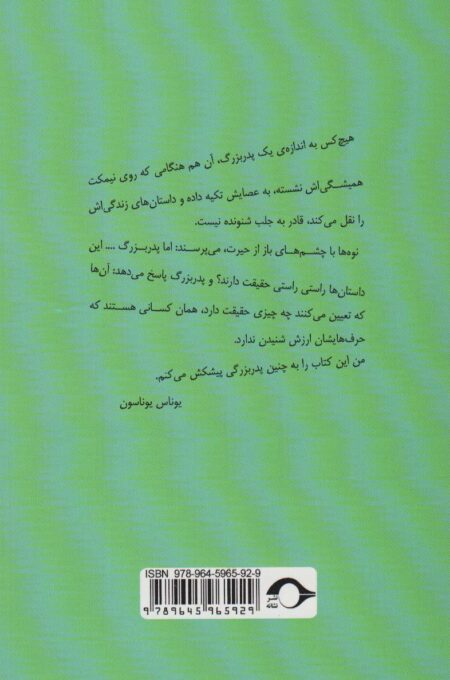 هیچ‌کس به اندازه‌ی یک پدربزرگ، آن هم هنگامی که روی نیمکت
همیشگی‌اش نشسته، به عصایش تکیه داده و داستان‌های زندگی‌اش
را نقل می‌کند، قادر به جلب شنونده نیست.
نوه‌ها با چشم‌های باز از حیرت، می‌پرسند: اما پدربزرگ .... این
داستان‌ها راستی راستی حقیقت دارند؟ و پدربزرگ پاسخ می‌دهد: آن‌ها
که تعیین می‌کنند چه چیزی حقیقت دارد، همان کسانی هستند که
حرف‌هایشان ارزش شنیدن ندارد.
من این کتاب را به چنین پدربزرگی پیشکش می‌کنم.
یوناس یوناسون
ISBN 978-964-5965-92-9
9 789645 965929
نشر
نشانه